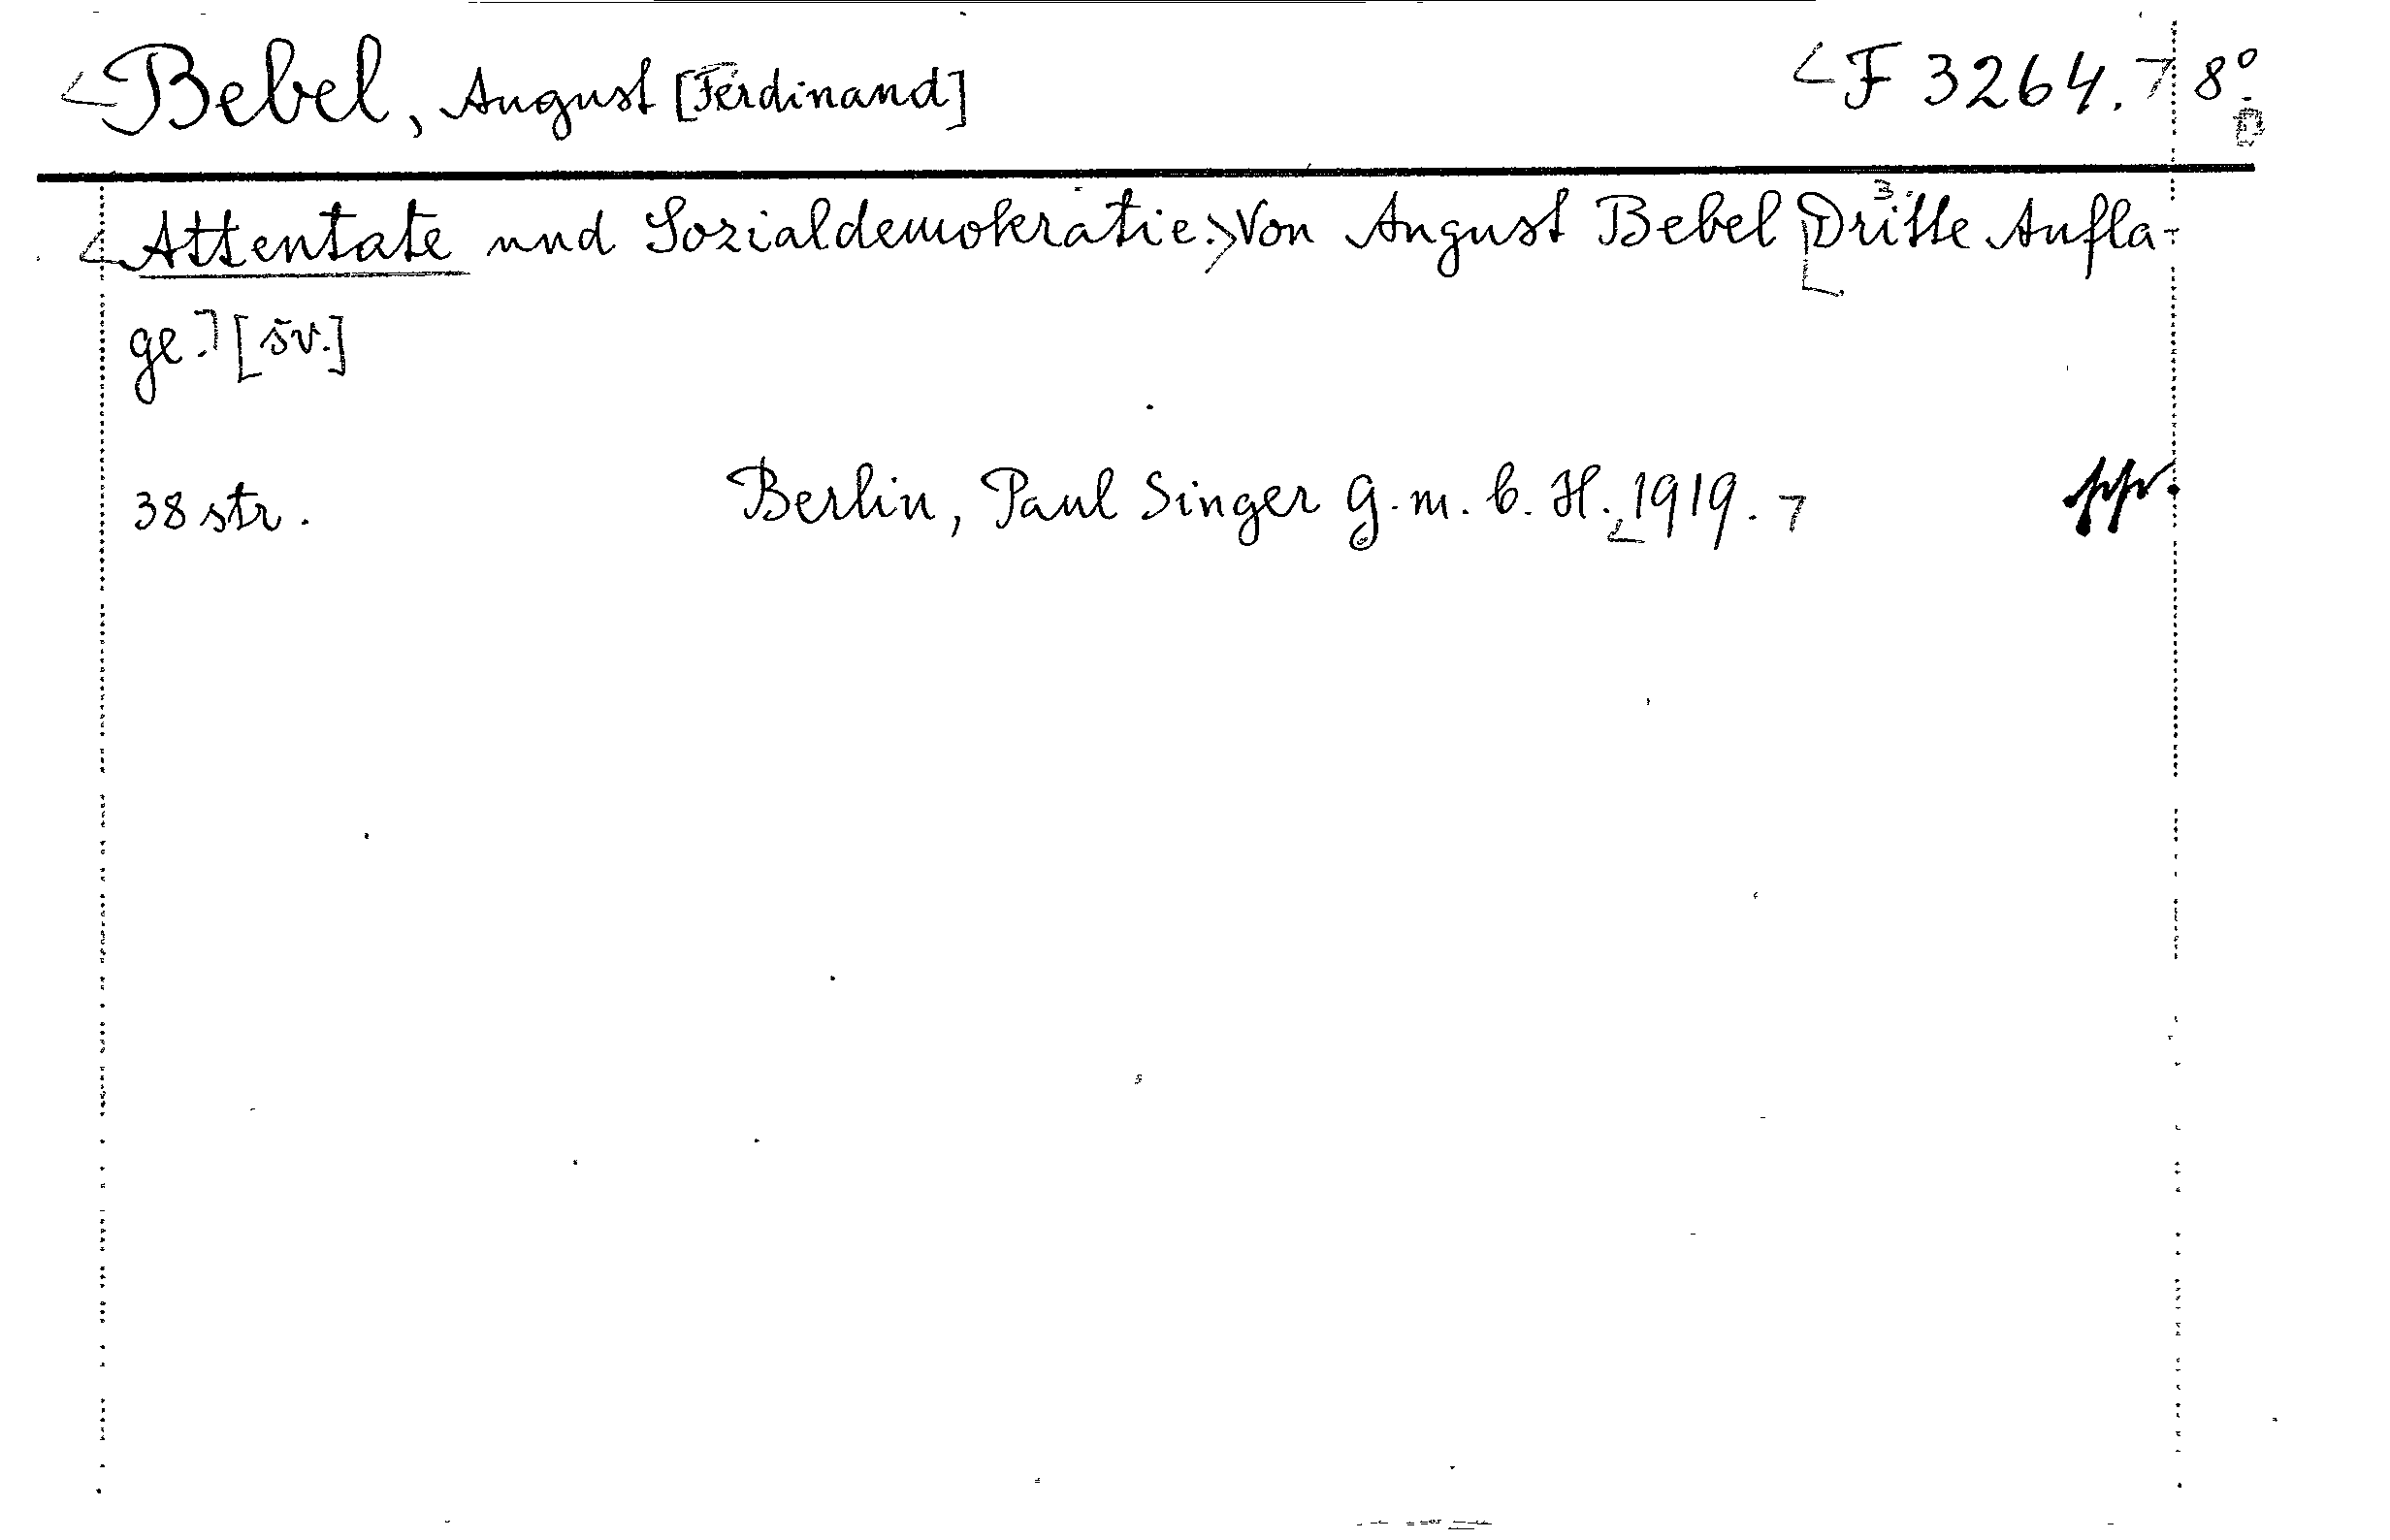 Bebel, August [Ferdinand] F 3264. 8°
Attentate und Sozialdemokratie. Von August Bebel Dritte Aufla-
ge. [šv.]
38 str. Berlin, Paul Singer G. m. b. H. 1919.